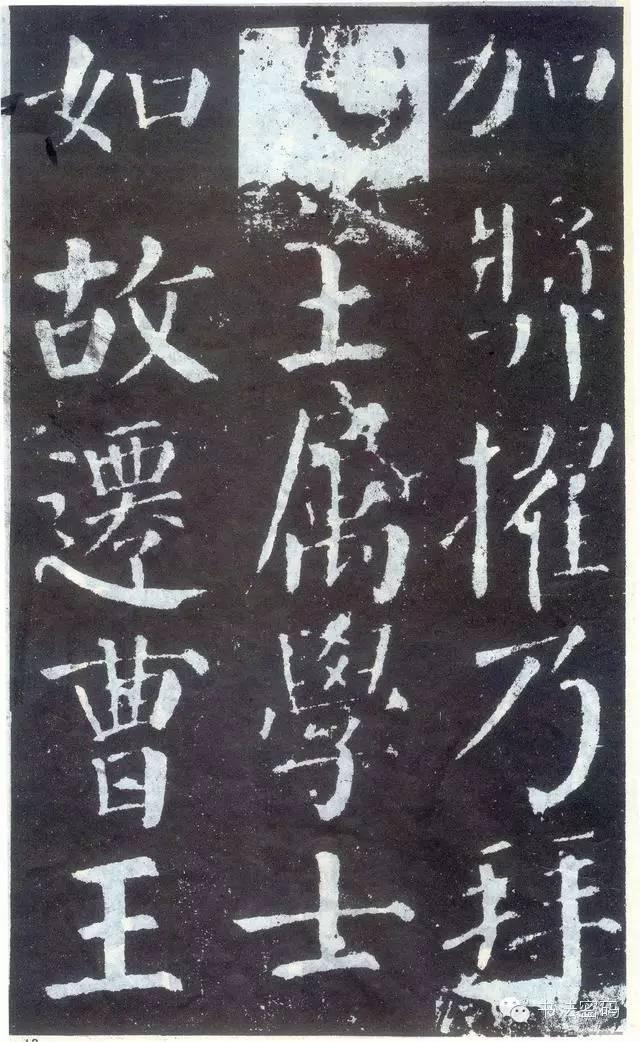 加奬擢乃拜
王屬學士
如故遷曹王
书法密码